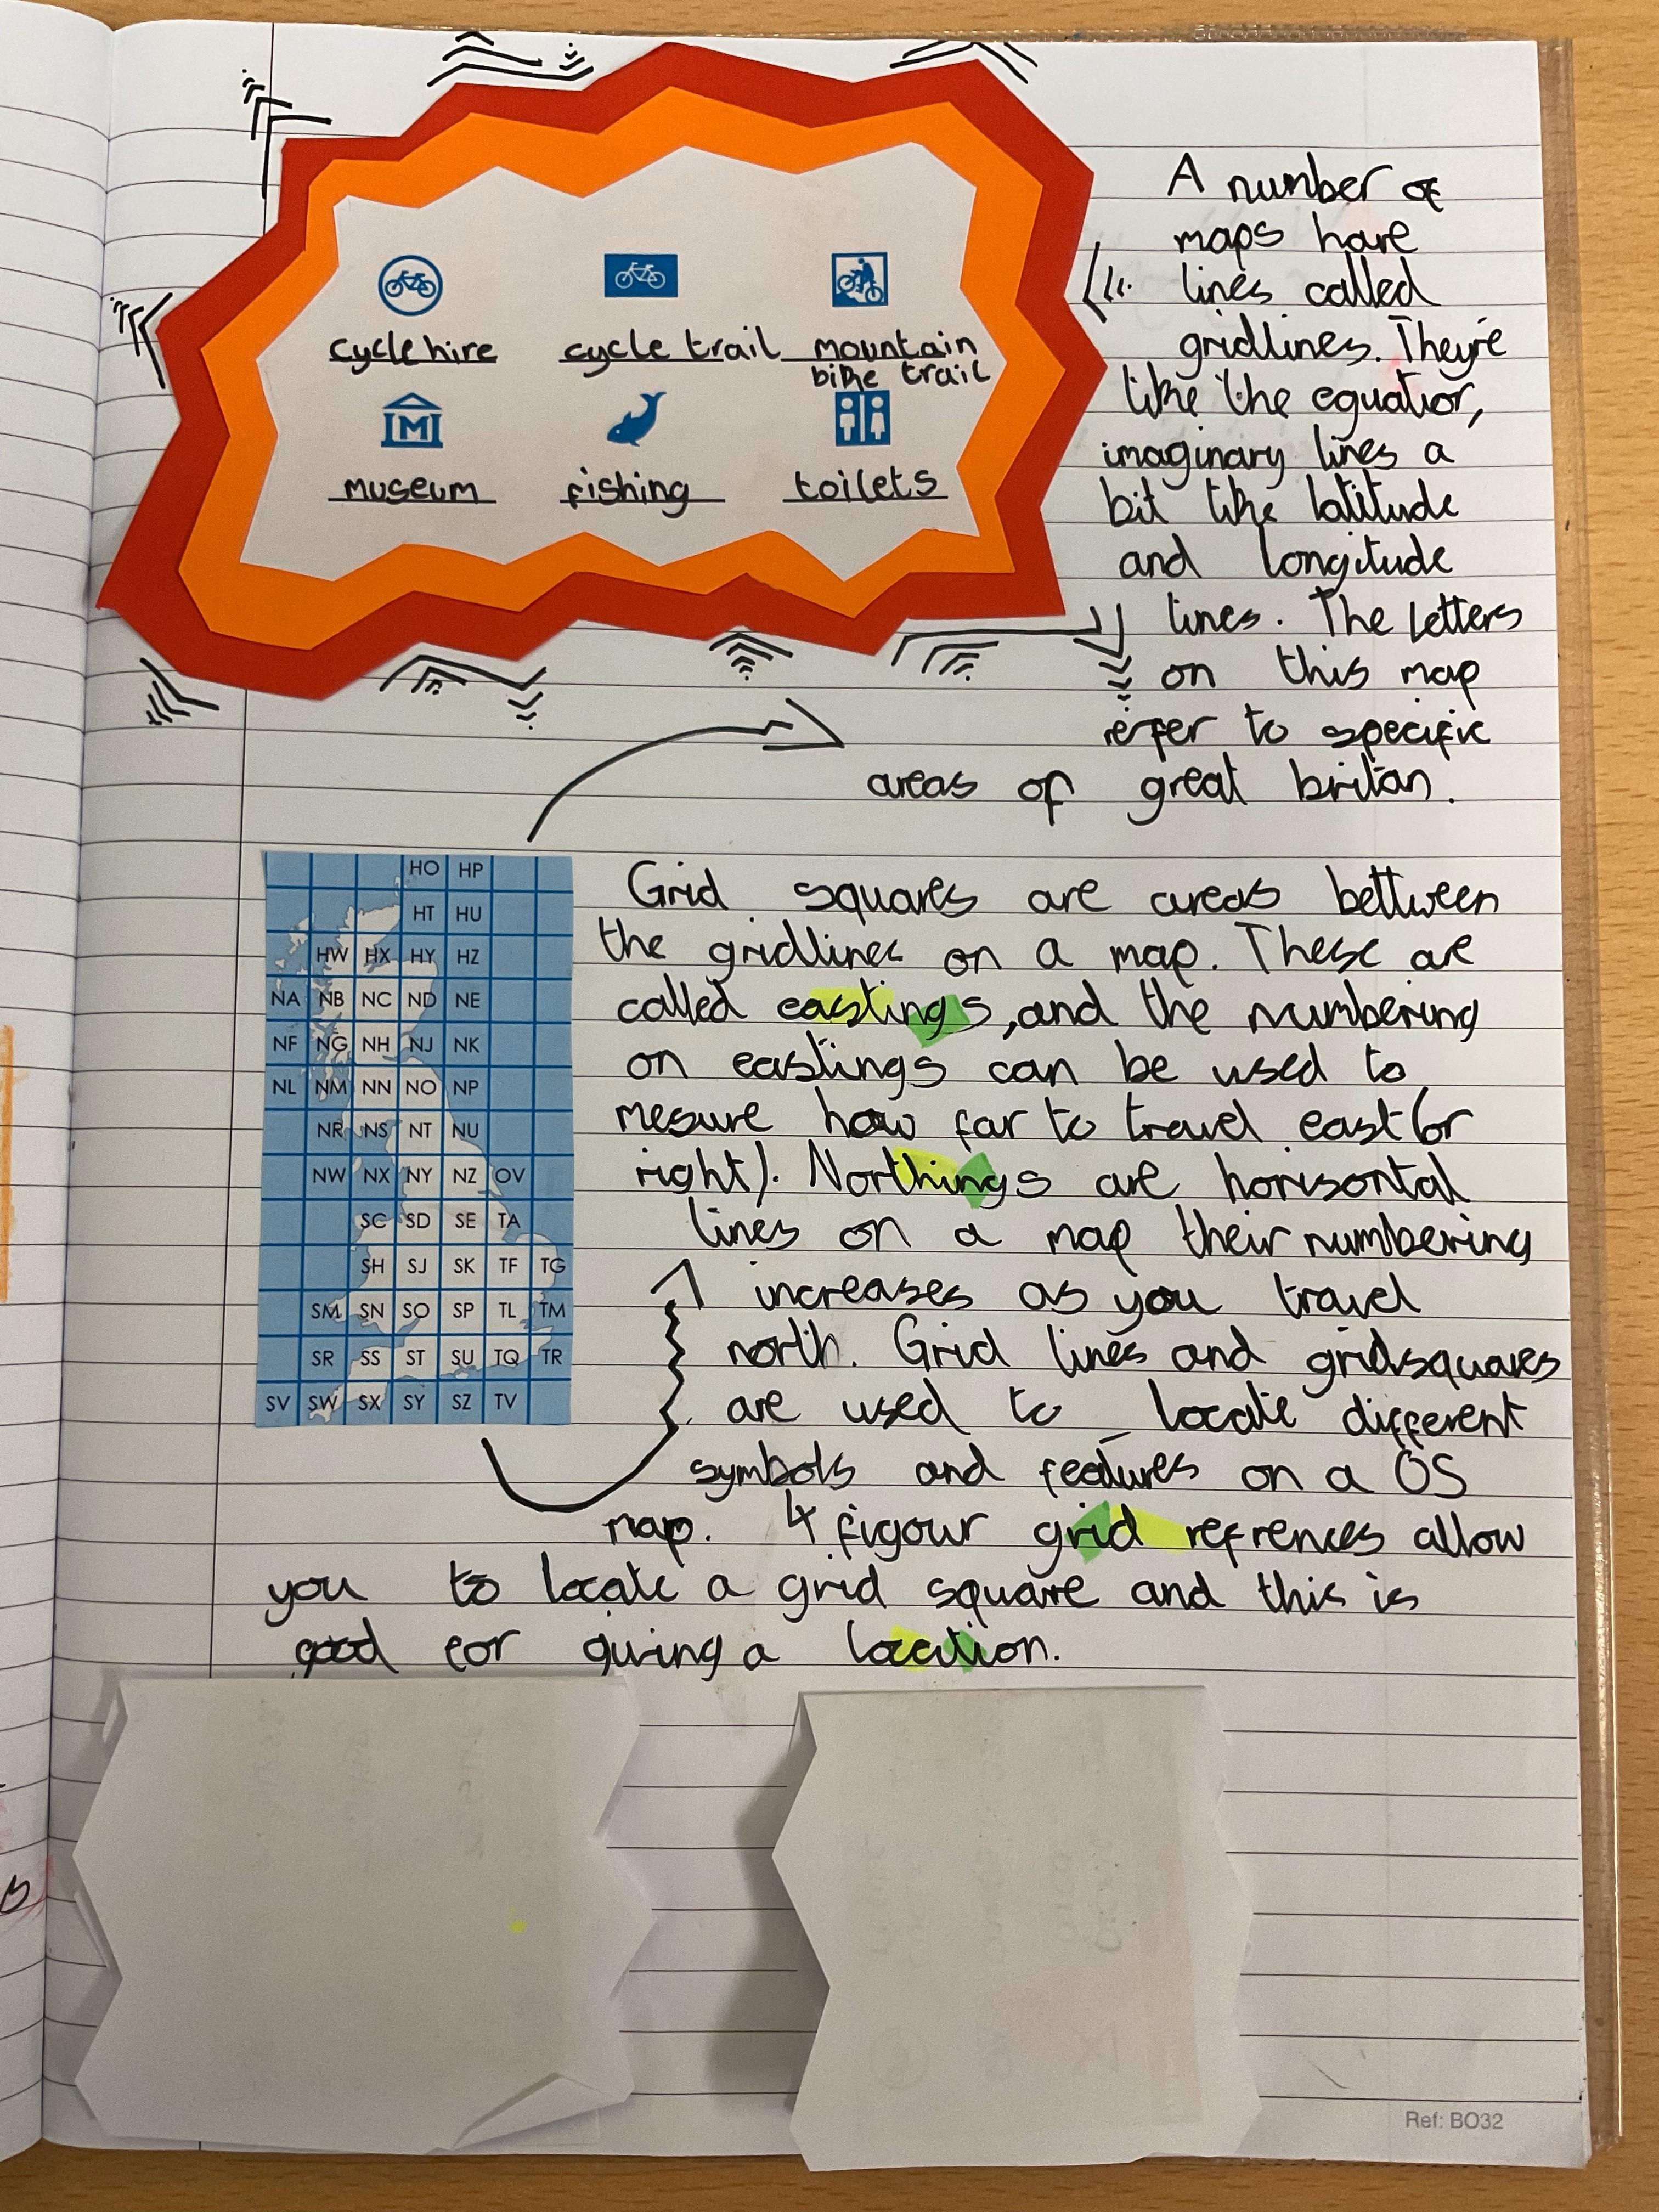 cycle hire cycle trail mountain
bike trail
museum fishing toilets
A number of
maps have
lines called
gridlines. They're
like the equatior,
imaginary lines a
bit like latitude
and longitude
lines. The letters
on this map
refer to specific
areas of great britan.
HO HP
HT HU
HW HX HY HZ
NA NB NC ND NE
NF NG NH NJ NK
NL NM NN NO NP
NR NS NT NU
NW NX NY NZ OV
SC SD SE TA
SH SJ SK TF TG
SM SN SO SP TL TM
SR SS ST SU TQ TR
SV SW SX SY SZ TV
Grid squares are areas bettween
the gridlines on a map. These are
called eastings, and the numbering
on eastings can be used to
mesure how far to travel east (or
right). Northings are horisontal
lines on a map their numbering
increases as you travel
north. Grid lines and gridsquares
are used to locate different
symbols and features on a OS
map. 4 figour grid refrences allow
you to locate a grid square and this is
good for giving a location.
Ref: BO32